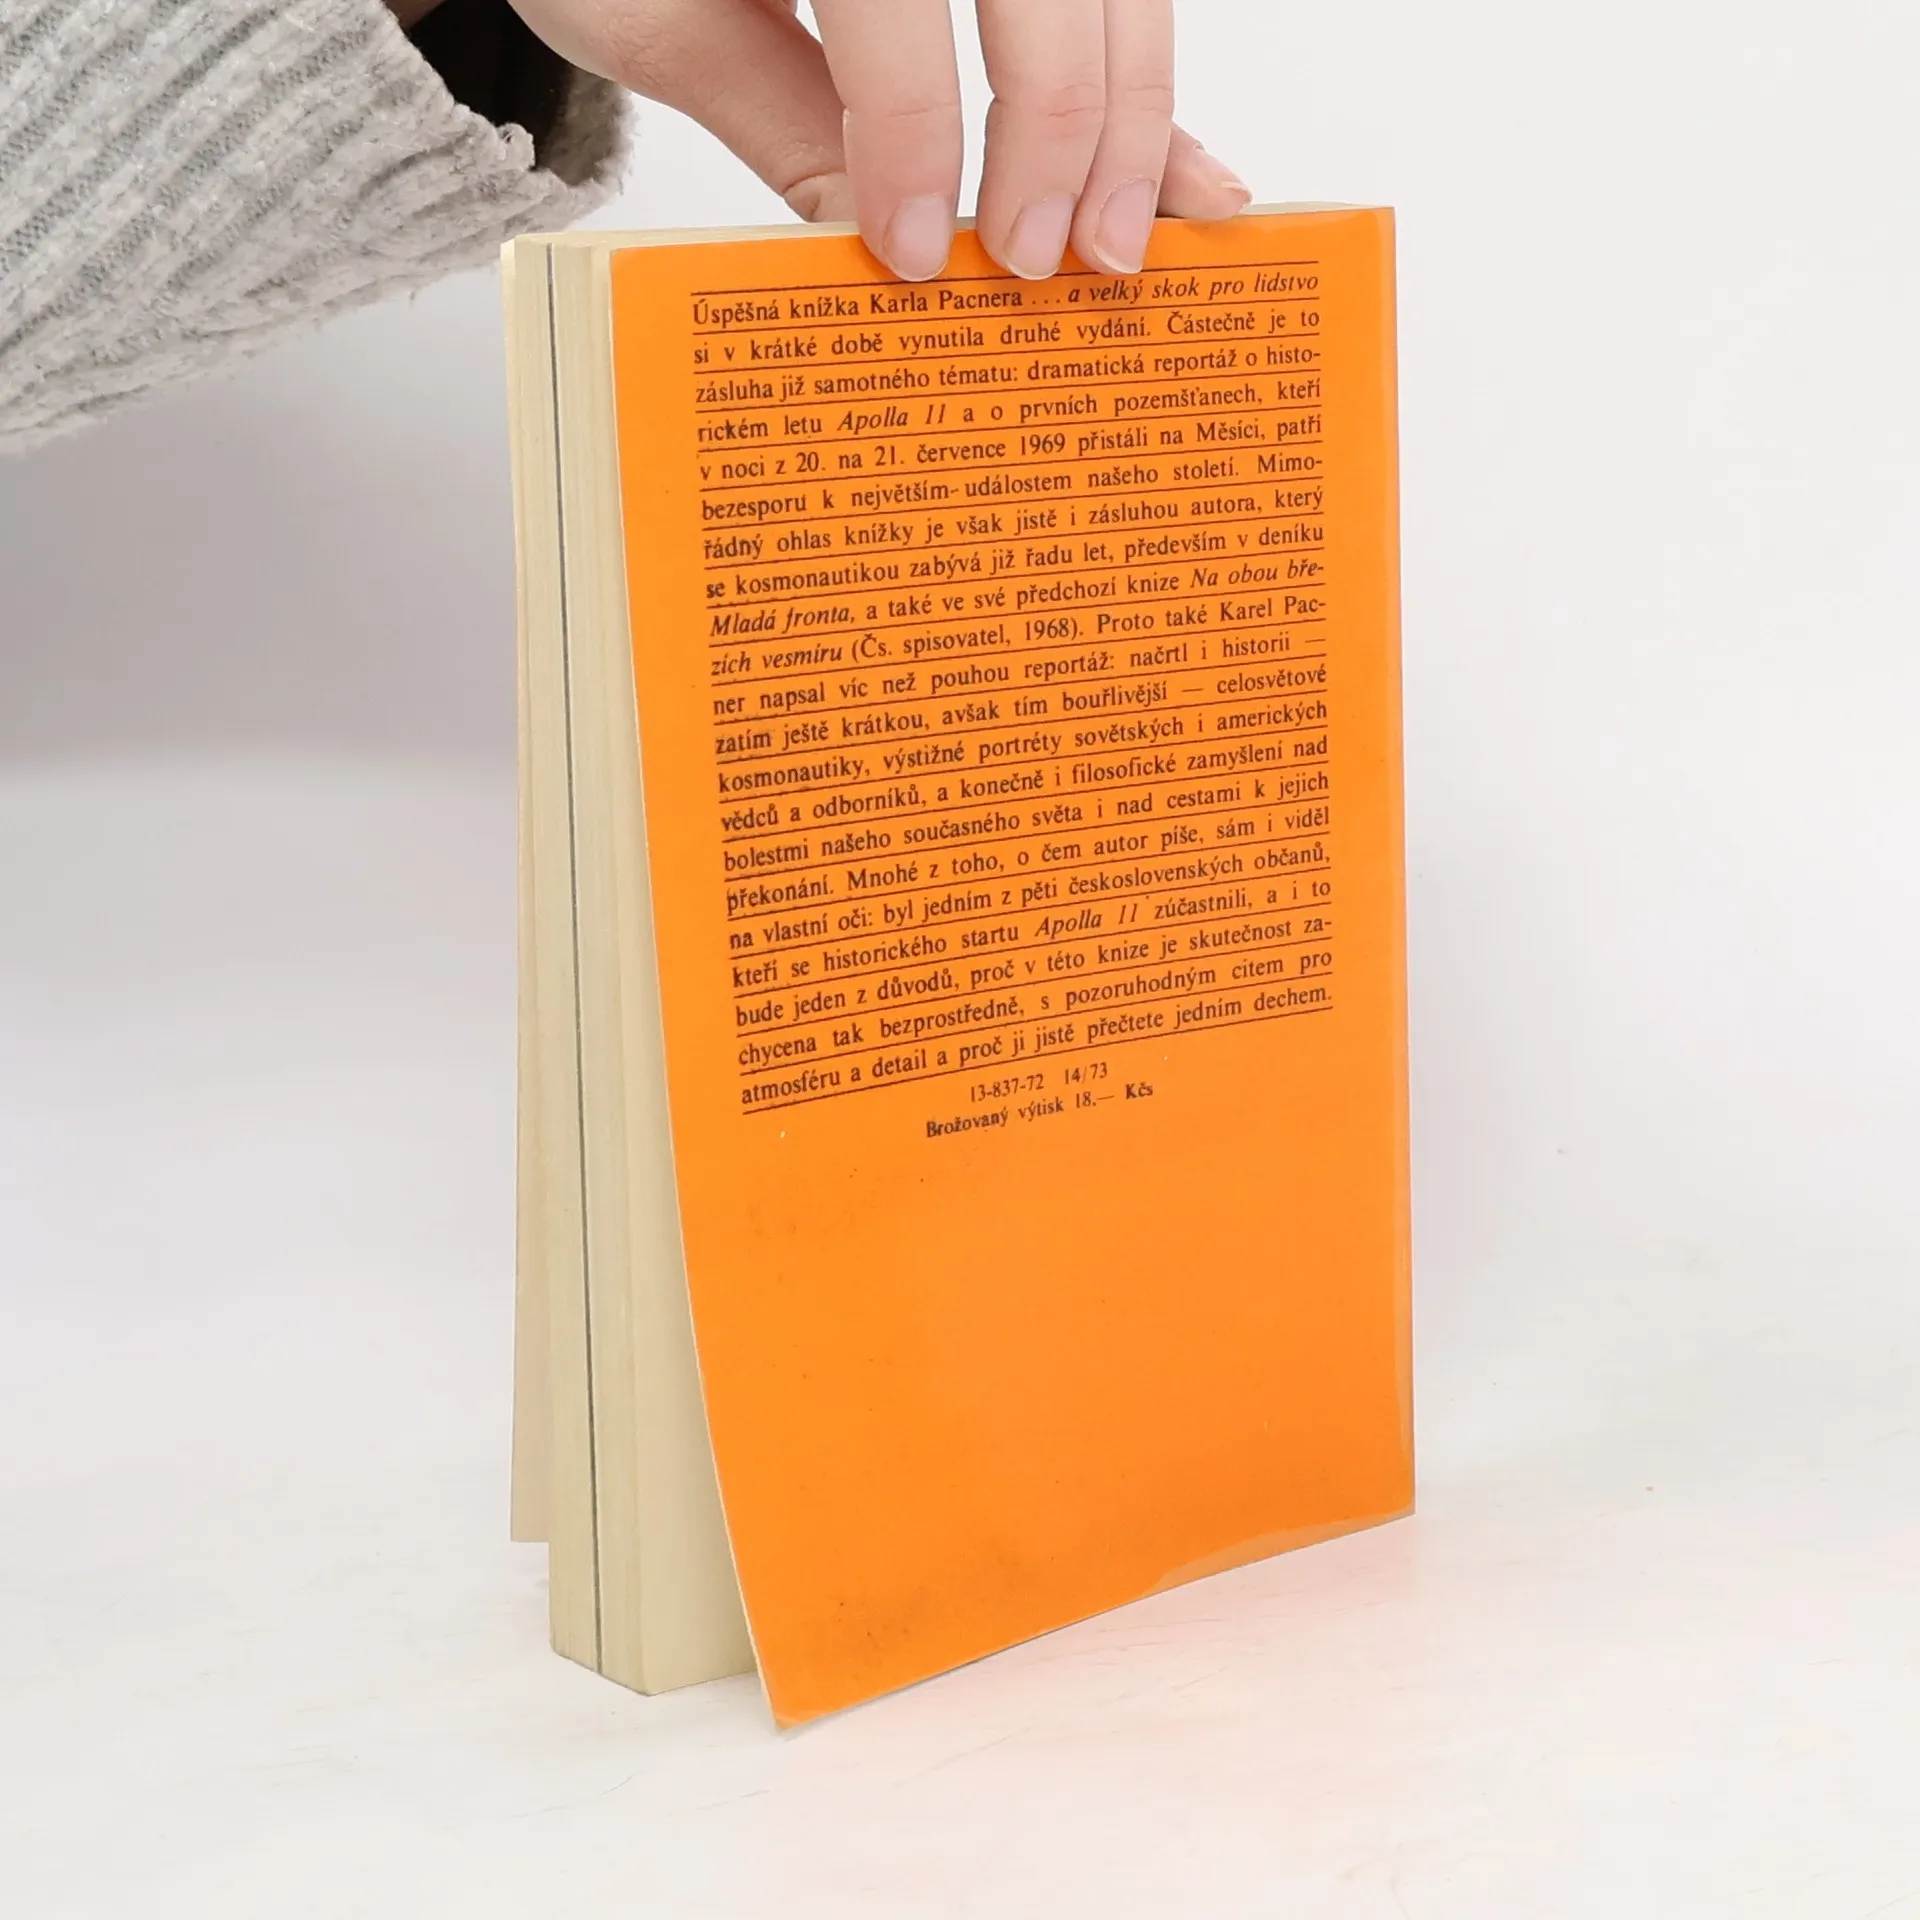 Úspěšná knížka Karla Pacnera ... a velký skok pro lidstvo
si v krátké době vynutila druhé vydání. Částečně je to
zásluha již samotného tématu: dramatická reportáž o histo-
rickém letu Apolla 11 a o prvních pozemšťanech, kteří
v noci z 20. na 21. července 1969 přistáli na Měsíci, patří
bezesporu k největším- událostem našeho století. Mimo-
řádný ohlas knížky je však jistě i zásluhou autora, který
se kosmonautikou zabývá již řadu let, především v deníku
Mladá fronta, a také ve své předchozí knize Na obou bře-
zích vesmíru (Čs. spisovatel, 1968). Proto také Karel Pac-
ner napsal víc než pouhou reportáž: načrtl i historii —
zatím ještě krátkou, avšak tím bouřlivější — celosvětové
kosmonautiky, výstižné portréty sovětských i amerických
vědců a odborníků, a konečně i filosofické zamyšlení nad
bolestmi našeho současného světa i nad cestami k jejich
překonání. Mnohé z toho, o čem autor píše, sám i viděl
na vlastní oči: byl jedním z pěti československých občanů,
kteří se historického startu Apolla 11 zúčastnili, a i to
bude jeden z důvodů, proč v této knize je skutečnost za-
chycena tak bezprostředně, s pozoruhodným citem pro
atmosféru a detail a proč ji jistě přečtete jedním dechem.
13-837-72 14/73
Brožovaný výtisk 18.— Kčs